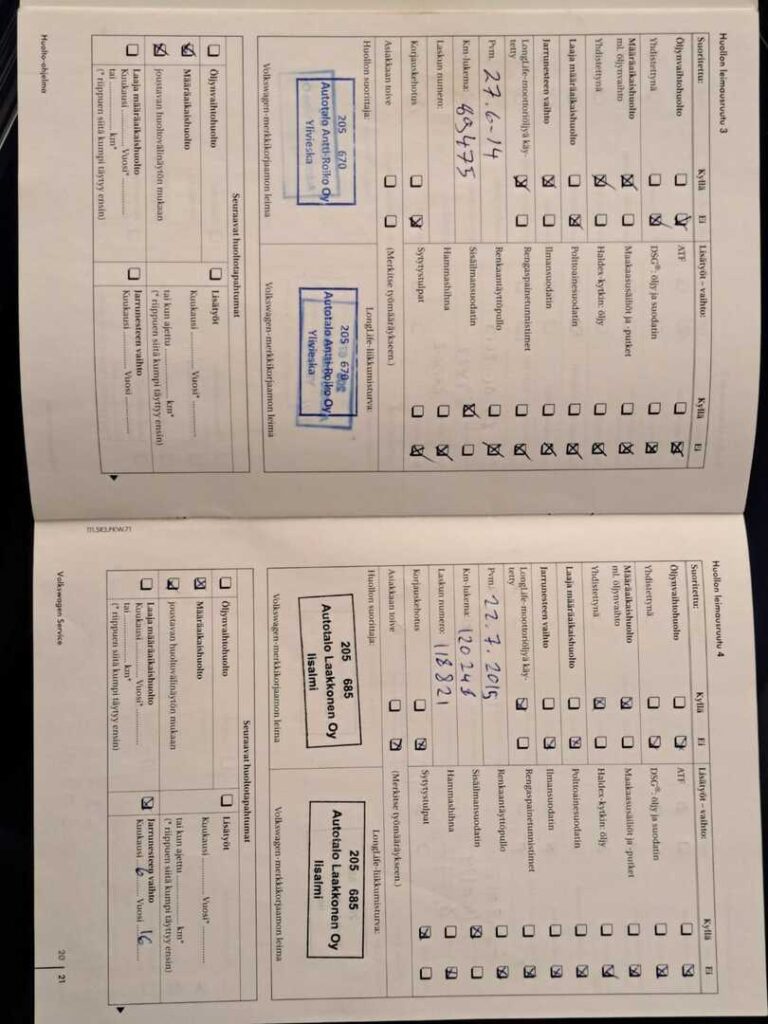 Huollon leimausruutu 3
Suoritettu: Kyllä Ei
Öljynvaihtohuolto
Yhdistettynä
Määräaikaishuolto
ml. öljynvaihto
Yhdistettynä
Laaja määräaikaishuolto
Jarrunesteen vaihto
LongLife-moottoriöljyä käy-
tetty
Pvm. 27.6-14
Km-lukema: 89475
Laskun numero:
Korjauskehotus
Asiakkaan toive
Lisätyöt – vaihto: Kyllä Ei
ATF
DSG®: öljy ja suodatin
Maakaasusäiliöt ja -putket
Haldex-kytkin: öljy
Polttoainesuodatin
Ilmansuodatin
Rengaspainetunnistimet
Renkaantäyttöpullo
Sisäilmansuodatin
Hammashihna
Sytytystulpat
(Merkitse työmääräykseen.)
Huollon suorittaja:
205 670
Autotalo Antti-Roiko Oy
Ylivieska
Volkswagen-merkkikorjaamon leima
LongLife-liikkumisturva:
205 670
Autotalo Antti-Roiko Oy
Ylivieska
Volkswagen-merkkikorjaamon leima
Seuraavat huoltotapahtumat
Öljynvaihtohuolto
Määräaikaishuolto
joustavan huoltovälinäytön mukaan
Laaja määräaikaishuolto
Kuukausi Vuosi*
tai km*
(* riippuen siitä kumpi täytyy ensin)
Lisätyöt
Kuukausi Vuosi*
tai kun ajettu km*
(* riippuen siitä kumpi täytyy ensin)
Jarrunesteen vaihto
Kuukausi Vuosi
Huolto-ohjelma
111.5R3.PKW.71
Huollon leimausruutu 4
Suoritettu: Kyllä Ei
Öljynvaihtohuolto
Yhdistettynä
Määräaikaishuolto
ml. öljynvaihto
Yhdistettynä
Laaja määräaikaishuolto
Jarrunesteen vaihto
LongLife-moottoriöljyä käy-
tetty
Pvm. 22.7.2015
Km-lukema: 120248
Laskun numero: 118821
Korjauskehotus
Asiakkaan toive
Lisätyöt – vaihto: Kyllä Ei
ATF
DSG®: öljy ja suodatin
Maakaasusäiliöt ja -putket
Haldex-kytkin: öljy
Polttoainesuodatin
Ilmansuodatin
Rengaspainetunnistimet
Renkaantäyttöpullo
Sisäilmansuodatin
Hammashihna
Sytytystulpat
(Merkitse työmääräykseen.)
Huollon suorittaja:
205 685
Autotalo Laakkonen Oy
Iisalmi
Volkswagen-merkkikorjaamon leima
LongLife-liikkumisturva:
205 685
Autotalo Laakkonen Oy
Iisalmi
Volkswagen-merkkikorjaamon leima
Seuraavat huoltotapahtumat
Öljynvaihtohuolto
Määräaikaishuolto
joustavan huoltovälinäytön mukaan
Laaja määräaikaishuolto
Kuukausi Vuosi*
tai km*
(* riippuen siitä kumpi täytyy ensin)
Lisätyöt
Kuukausi Vuosi*
tai kun ajettu km*
(* riippuen siitä kumpi täytyy ensin)
Jarrunesteen vaihto
Kuukausi 6 Vuosi 16
Volkswagen Service
20 | 21